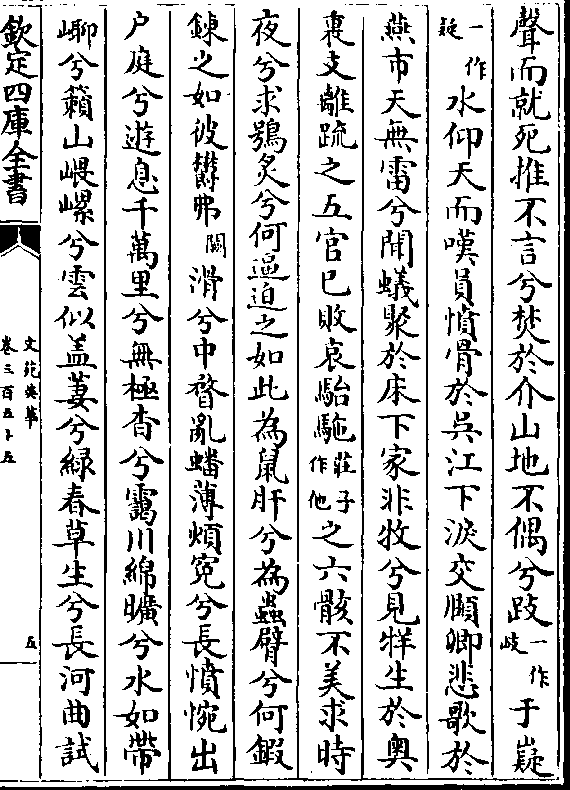 聲而就死推不言兮焚於介山地不偶兮跂一作岐于嶷
一作疑水仰天而嘆員憤骨於吳江下淚交頤卿悲歌於
燕市天無雷兮聞蟻聚於床下家非牧兮見牂生於奥
裏支離疏之五官已敗哀駘駞莊子作他之六骸不美求時
夜兮求鴞炙兮何逼迫之如此為鼠肝兮為蟲臂兮何鍜
鍊之如彼欎弗闕滑兮中瞀亂蟠薄煩寃兮長憤惋出
户庭兮遊息千萬里兮無極杳兮靄川綿曠兮水如帶
兮籟山嵔兮雲似盖萋兮緑春草生兮長河曲試
欽定四庫全書
文苑英華
卷三百五十五
五